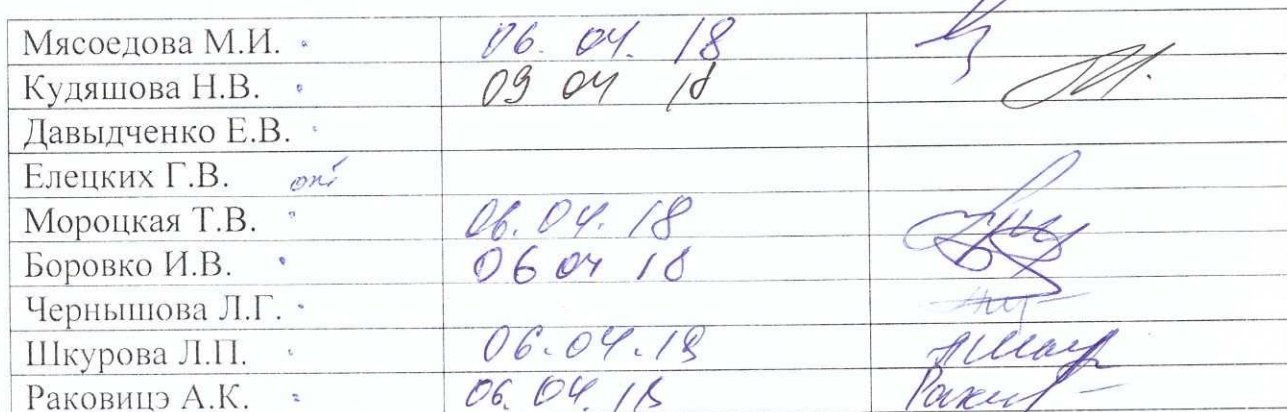 Мясоедова М.И. 06.04.18
Кудяшова Н.В. 09 04 18
Давыдченко Е.В.
Елецких Г.В. отп
Мороцкая Т.В. 06.04.18
Боровко И.В. 06 04 18
Чернышова Л.Г.
Шкурова Л.П. 06.04.18
Раковицэ А.К. 06.04.18